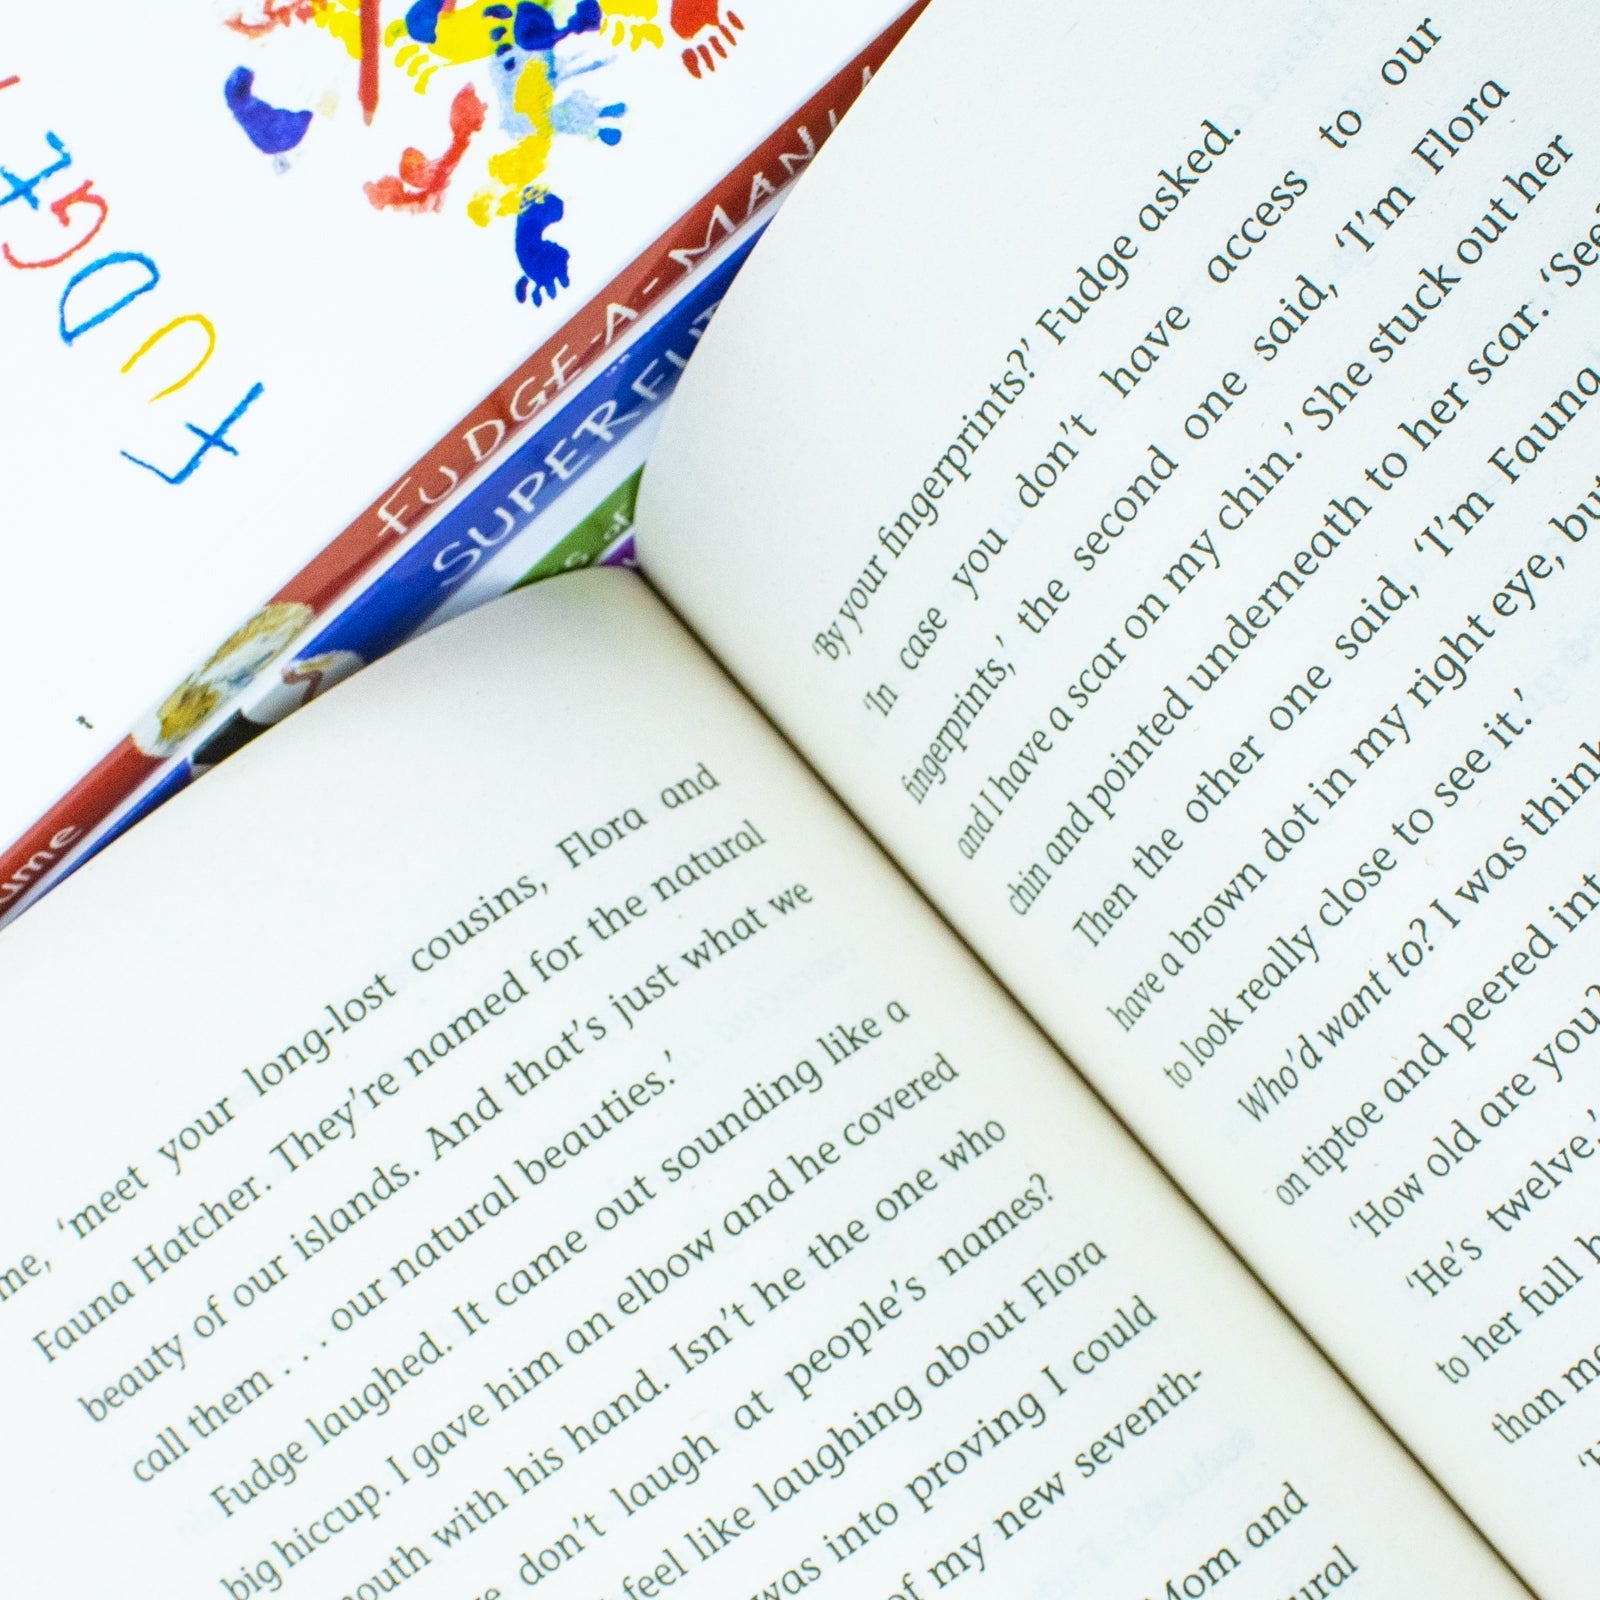 FUDGE
FUDGE-A-MANIA
SUPERFUDGE
me, ‘meet your long-lost cousins, Flora and
Fauna Hatcher. They’re named for the natural
beauty of our islands. And that’s just what we
call them . . . our natural beauties.’
Fudge laughed. It came out sounding like a
big hiccup. I gave him an elbow and he covered
mouth with his hand. Isn’t he the one who
don’t laugh at people’s names?
feel like laughing about Flora
was into proving I could
of my new seventh-
Mom and
‘By your fingerprints?’ Fudge asked.
‘In case you don’t have access to our
fingerprints,’ the second one said, ‘I’m Flora
and I have a scar on my chin.’ She stuck out her
chin and pointed underneath to her scar. ‘See
Then the other one said, ‘I’m Fauna
have a brown dot in my right eye, but
to look really close to see it.’
Who’d want to? I was think
on tiptoe and peered int
‘How old are you?
‘He’s twelve,’
to her full h
than me